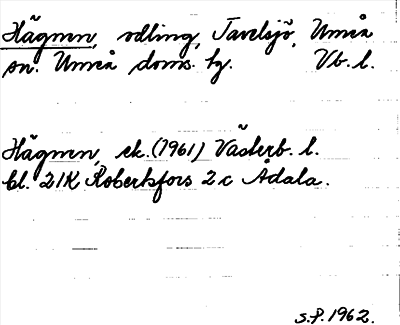 Hägnen, odling, Tavelsjö, Umeå
sn. Umeå doms. hg. Vb. l.
Hägnen, ek. (1961) Västerb. l.
bl. 21K Robertsfors 2c Ådala.
S.P. 1962.